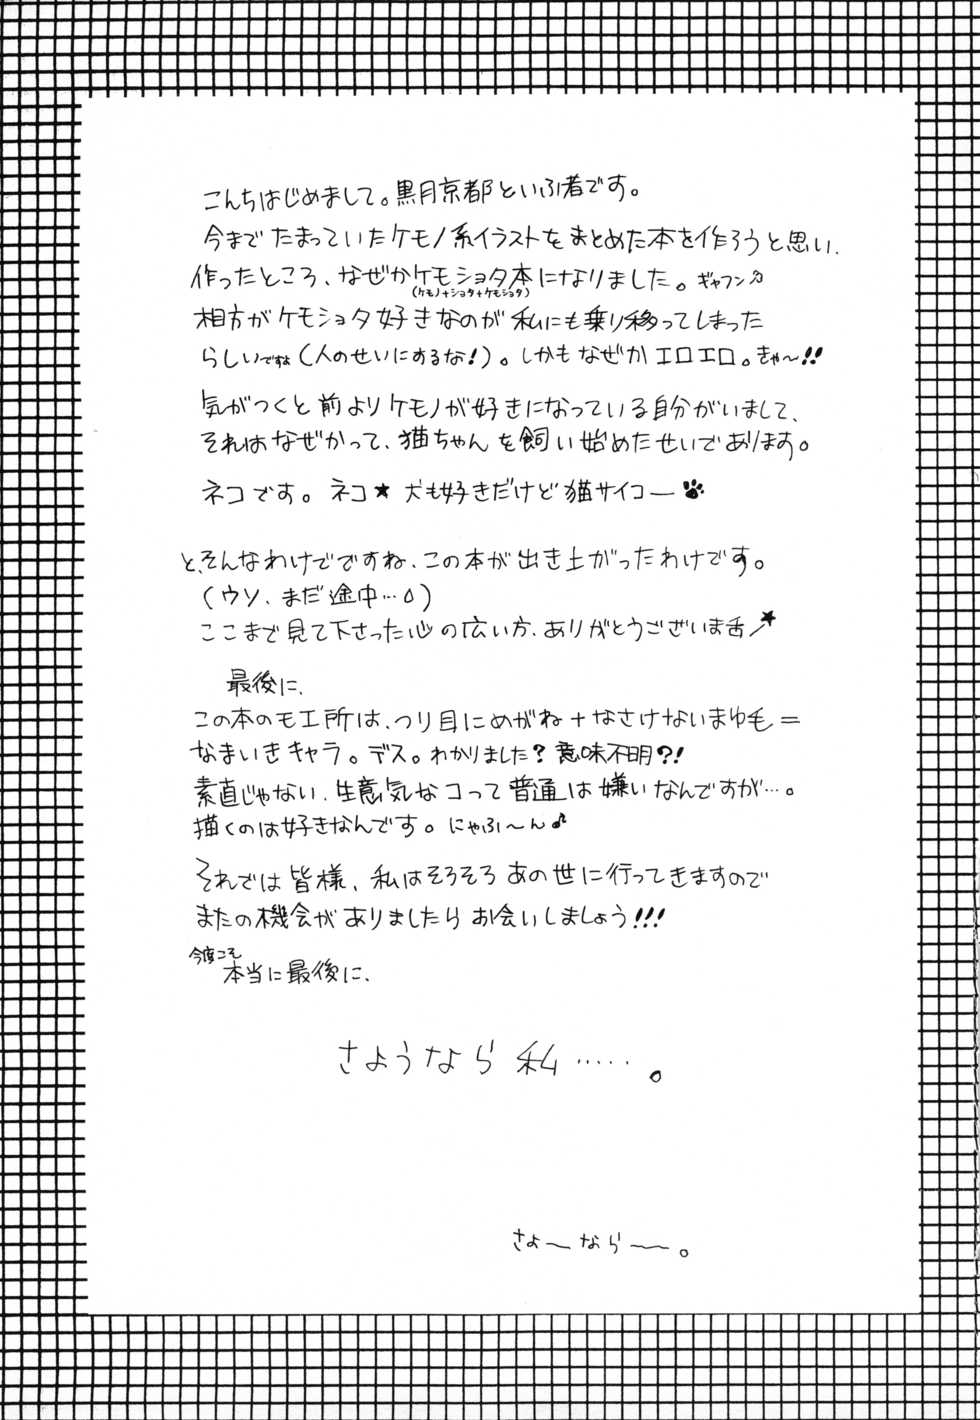 こんちはじめまして。黒月京都といふ者です。
今までたまっていたケモノ系イラストをまとめた本を作ろうと思い、
作ったところ、なぜかケモショタ本になりました。ギャフン
(ケモノ+ショタ+ケモショタ)
相方がケモショタ好きなのが私にも乗り移ってしまった
らしいですよ(人のせいにするな!)。しかもなぜかエロエロ。きゃ〜!!
気がつくと前よりケモノが好きになっている自分がいまして、
それはなぜかって、猫ちゃんを飼い始めたせいであります。
ネコです。ネコ★犬も好きだけど猫サイコー
と、そんなわけでですね、この本が出き上がったわけです。
(ウソ、まだ途中…)
ここまで見て下さった心の広い方、ありがとうございま舌
最後に、
この本のモエ所は、つり目にめがね+なさけないまゆ毛=
なまいきキャラ。デス。わかりました?意味不明?!
素直じゃない、生意気なコって普通は嫌いなんですが…。
描くのは好きなんです。にゃふ〜ん♪
それでは皆様、私はそろそろあの世に行ってきますので
またの機会がありましたらお会いしましょう!!!
今度こそ
本当に最後に、
さようなら私……。
さよ〜なら〜。